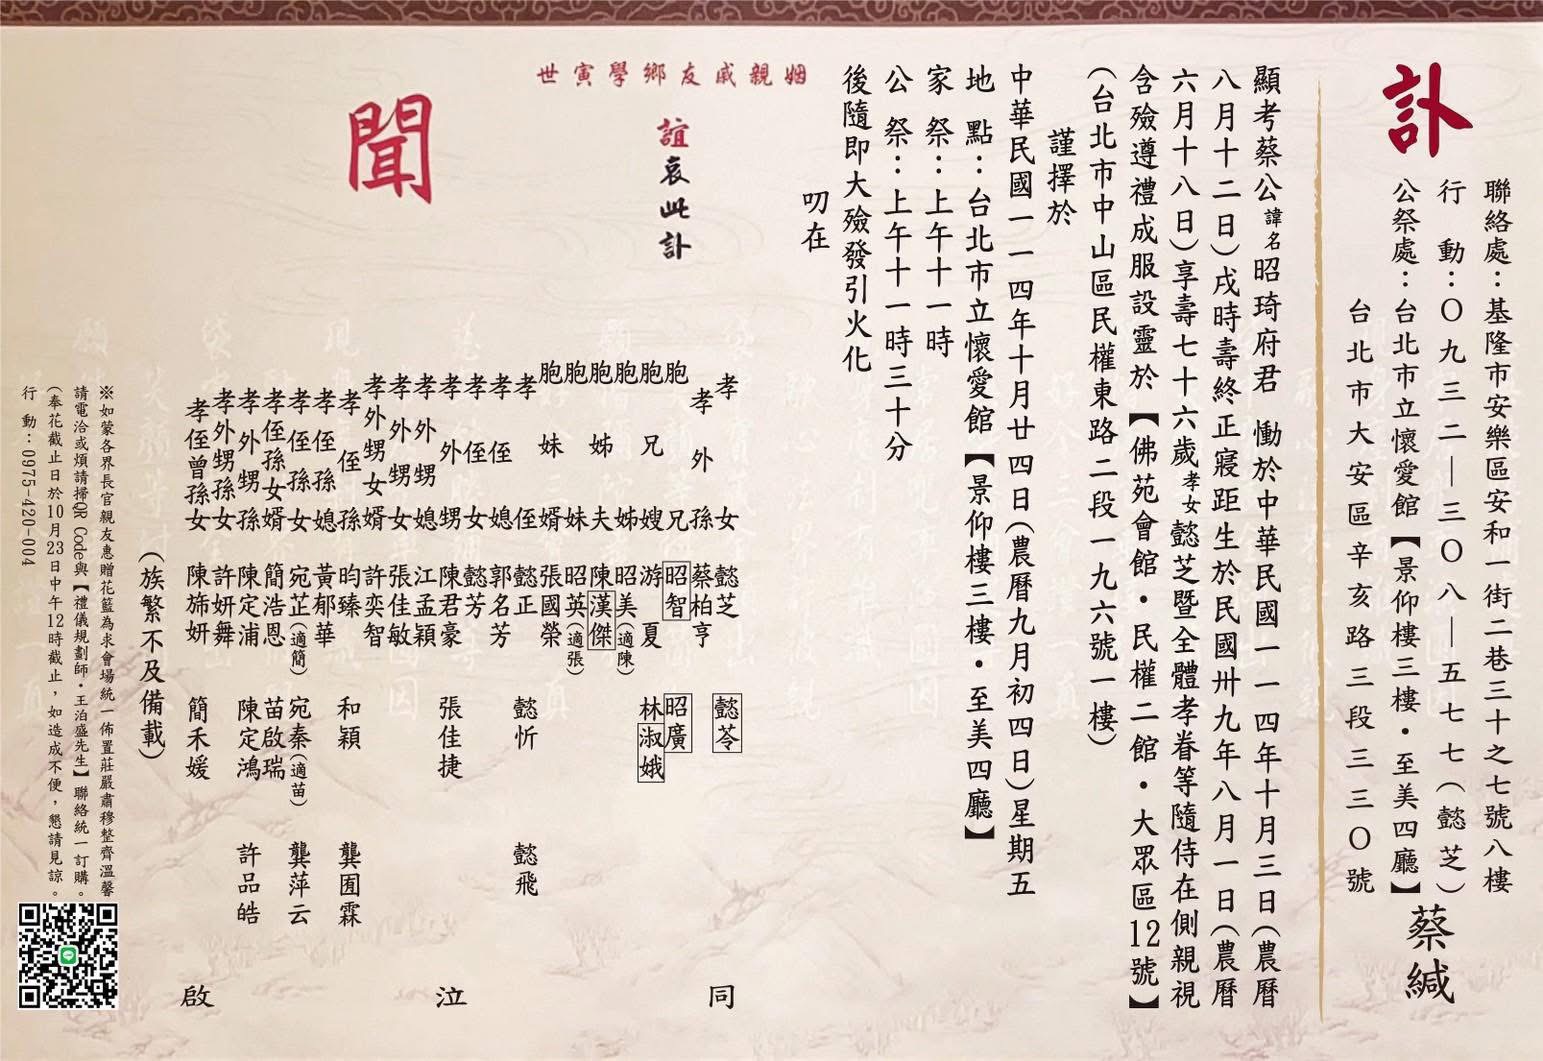 訃
聯絡處：基隆市安樂區安和一街二巷三十之七號八樓
行　動：０九三二—三０八—五七七（懿芝）
公祭處：台北市立懷愛館【景仰樓三樓・至美四廳】
台北市大安區辛亥路三段三三０號
蔡緘
顯考蔡公諱名昭琦府君　慟於中華民國一一四年十月三日（農曆
八月十二日）戌時壽終正寢距生於民國卅九年八月一日（農曆
六月十八日）享壽七十六歲孝女懿芝暨全體孝眷等隨侍在側親視
含殮遵禮成服設靈於【佛苑會館・民權二館・大眾區12號】
（台北市中山區民權東路二段一九六號一樓）
謹擇於
中華民國一一四年十月廿四日（農曆九月初四日）星期五
地　點：台北市立懷愛館【景仰樓三樓・至美四廳】
家　祭：上午十一時
公　祭：上午十一時三十分
後隨即大殮發引火化
叨在
世寅學鄉友戚親姻
誼哀此訃
聞
孝女　懿芝　懿苓
孝外孫　蔡柏亨
胞兄　昭智　昭廣
胞兄嫂　游夏　林淑娥
胞姊　昭美（適陳）
胞姊夫　陳漢傑
胞妹　昭英（適張）
胞妹婿　張國榮
孝侄　懿正　懿忻　懿飛
孝侄媳　郭名芳
孝侄女　懿芳
孝外甥　陳君豪　張佳捷
孝外甥媳　江孟穎
孝外甥女　張佳敏
孝外甥女婿　許奕智
孝侄孫　昀臻　和穎　龔囿霖
孝侄孫媳　黃郁華
孝侄孫女　宛芷（適簡）　宛秦（適苗）　龔萍云
孝侄孫女婿　簡浩恩　苗啟瑞
孝外甥孫　陳定浦　陳定鴻　許品皓
孝外甥孫女　許妍舞
孝侄曾孫女　陳旆妍　簡禾媛
同
泣
啟
（族繁不及備載）
※如蒙各界長官親友惠贈花籃為求會場統一佈置莊嚴肅穆整齊溫馨
請電洽或煩請掃QR Code與【禮儀規劃師・王泊盛先生】聯絡統一訂購。
（奉花截止日於10月23日中午12時截止，如造成不便，懇請見諒。
行　動：0975-420-004